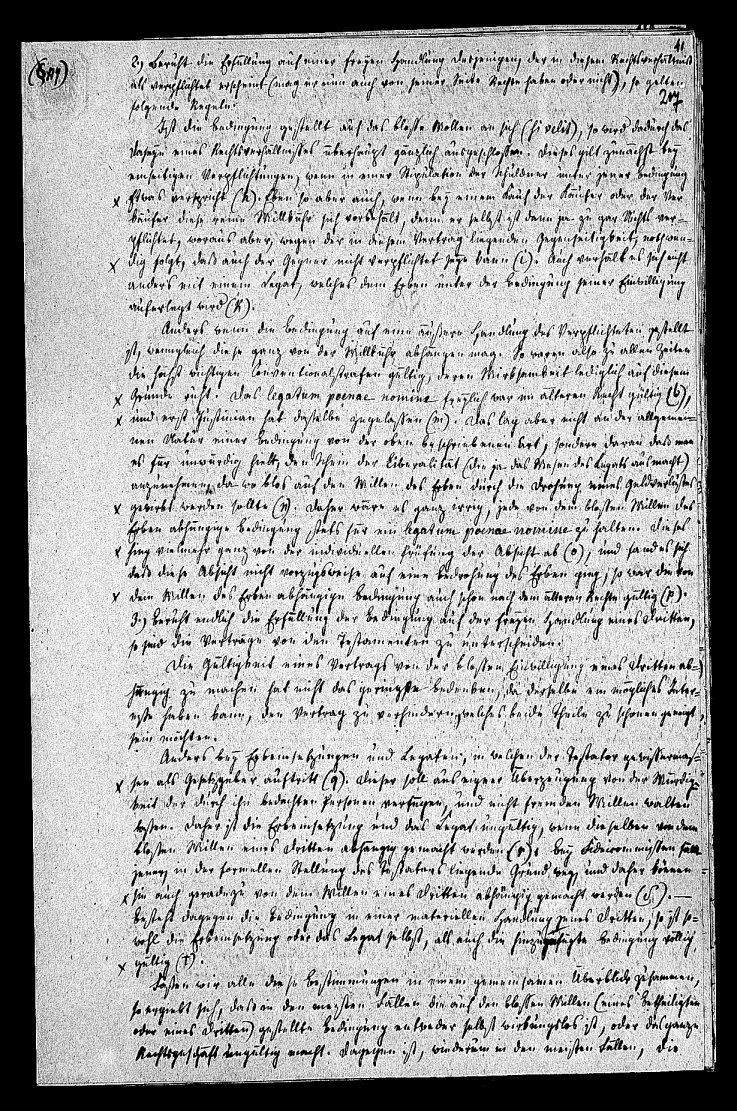 41
207
(§117)
2) Beruht die Erfüllung auf einer freyen Handlung desjenigen, der in diesem Rechtsverhältniß
als verpflichtet erscheint (mag er nun auch von seiner Seite Rechte haben oder nicht), so gelten
folgende Regeln:
Ist die Bedingung gestellt auf das bloße Wollen an sich (si velit), so wird dadurch das
Daseyn eines Rechtsverhältnisses überhaupt gänzlich ausgeschlossen. Dieses gilt zunächst bey
einseitigen Verpflichtungen, wenn in einer Stipulation der Schuldner unter jener Bedingung
x Etwas verspricht (h). Eben so aber auch, wenn bey einem Kauf der Käufer oder der Ver-
käufer diese reine Willkühr sich vorbehält, denn er selbst ist dann ja zu gar Nichts ver-
pflichtet, woraus aber, wegen der in diesem Vertrag liegenden Gegenseitigkeit, nothwen-
x dig folgt, daß auch der Gegner nicht verpflichtet seyn kann (i). Auch verhält es sich nicht
anders mit einem Legat, welches dem Erben unter der Bedingung seiner Einwilligung
auferlegt wird (k).
Anders wenn die Bedingung auf eine äußere Handlung des Verpflichteten gestellt
ist, wenngleich diese ganz von der Willkühr abhängen mag. So waren also zu allen Zeiten
die höchst wichtigen Conventionalstrafen gültig, deren Wirksamkeit lediglich auf diesem
x Grunde ruht. Das legatum poenae nomine freylich war im älteren Recht gültig (l),
x und erst Justinian hat dasselbe zugelassen (m). Das lag aber nicht an der allgemei-
nen Natur einer Bedingung von der oben beschriebenen Art, sondern daran daß man
es für unwürdig hielt, den Schein der Liberalität (die ja das Wesen des Legats ausmacht)
anzunehmen, da wo blos auf den Willen des Erben durch die Drohung eines Geldverlustes
x gewirkt werden sollte (n). Daher wäre es ganz irrig, jede von dem bloßen Willen des
Erben abhängige Bedingung stets für ein legatum poenae nomine zu halten. Dieses
x hing vielmehr ganz von der individuellen Prüfung der Absicht ab (o), und fand es sich
daß diese Absicht nicht vorzugsweise auf eine Bedrohung des Erben ging, so war die von
x dem Willen des Erben abhängige Bedingung auch schon nach dem älteren Rechte gültig (p).
3) Beruht endlich die Erfüllung der Bedingung auf der freyen Handlung eines Dritten,
so sind die Verträge von den Testamenten zu unterscheiden.
Die Gültigkeit eines Vertrags von der bloßen Einwilligung eines Dritten ab-
hängig zu machen hat nicht das geringste Bedenken, da derselbe ein mögliches Inter-
esse haben kann, den Vertrag zu verhindern, welches beide Theile zu schonen geneigt
sein möchten.
Anders bey Erbeinsetzungen und Legaten, in welchen der Testator gewissermas-
x sen als Gesetzgeber auftritt (q). Dieser soll aus eigner Überzeugung von der Würdig-
keit der durch ihn bedachten Personen verfügen, und nicht fremden Willen walten
lassen. Daher ist die Erbeinsetzung und das Legat ungültig, wenn dieselben von dem
bloßen Willen eines Dritten abhängig gemacht werden (r). Bey Fideicommissen fällt
jener, in der formellen Stellung des Testators liegende Grund weg, und daher können
x sie auch geradezu von dem Willen eines Dritten abhängig gemacht werden (s). —
Besteht dagegen die Bedingung in einer materiellen Handlung jenes Dritten, so ist so-
wohl die Erbeinsetzung oder das Legat selbst, als auch die hinzugefügte Bedingung völlig
x gültig (t).
Fassen wir alle diese Bestimmungen in einem gemeinsamen Überblick zusammen,
so ergiebt sich, daß in den meisten Fällen die auf den bloßen Willen (eines Betheiligten
oder eines Dritten) gestellte Bedingung entweder selbst wirkungslos ist, oder das ganze
Rechtsgeschäft ungültig macht. Dagegen ist, wiederum in den meisten Fällen, die